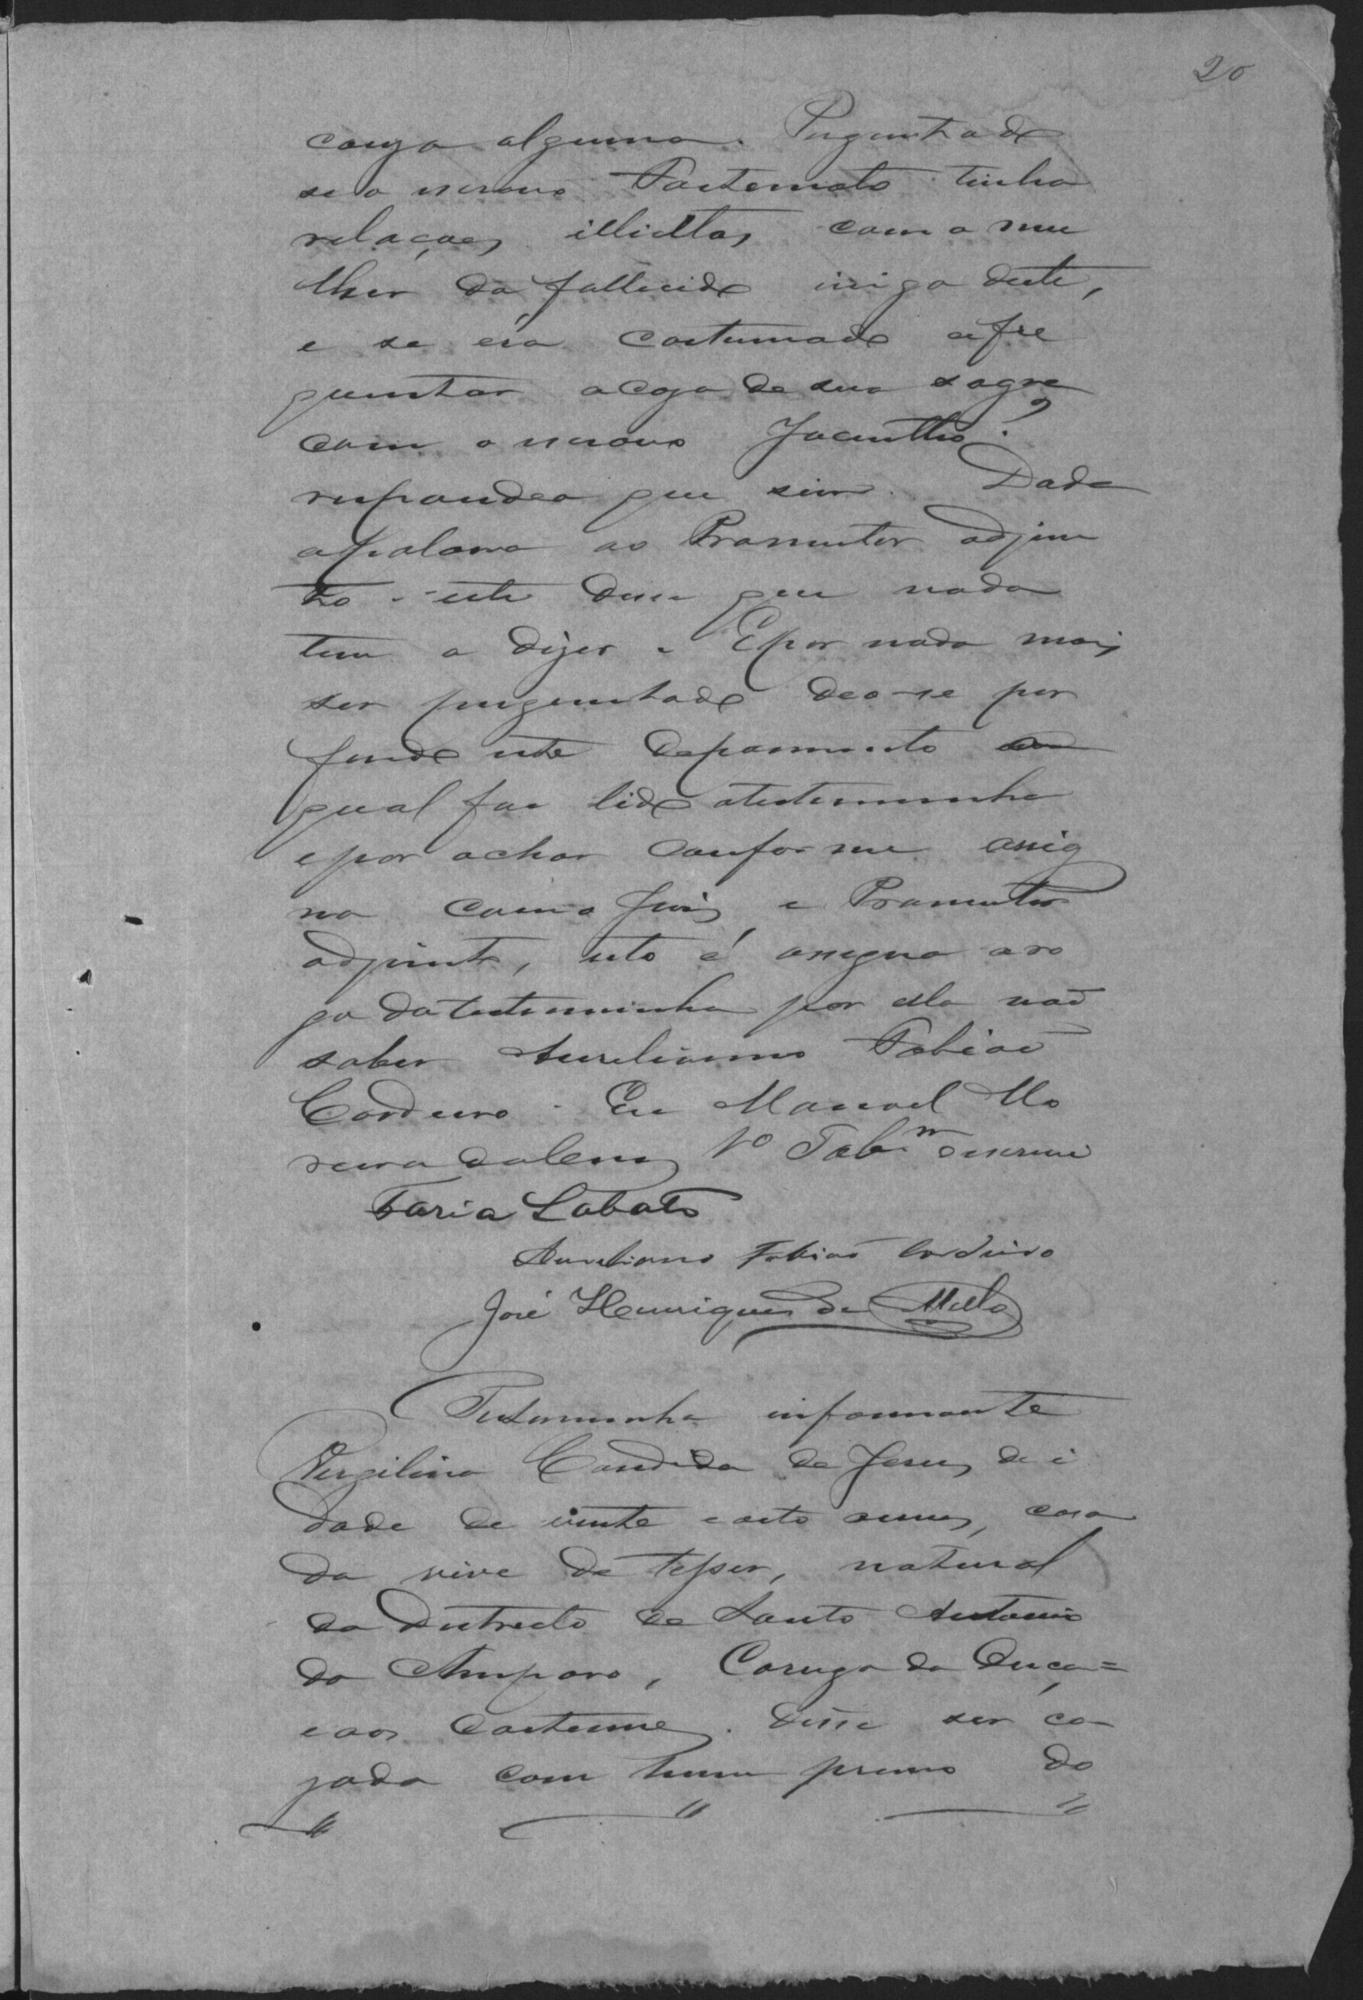 20
couza alguma. Perguntado
se o escravo Fortunato tinha
relações illicitas com a mu
lher do fallecido
e se era costumado afre
quentar acaza de sua sogra
com o escravo Jacintho?
respondeo que sim. Dada
apalavra ao Promutor adjun
to este disse que nada
tem a dizer. Epor nada mais
ser perguntado deo-se por
findo este depoimento
qual foi lido atestemunha
epor achar conforme assig
na com o Juis e Promutor
adjunto, isto é assigna aro
go datestemunha por ella não
saber Aureliano Fabião
Cordeiro. Eu Manoel Mo
reira 1º Tab.m oescrevi
Faria Lobato
Aureliano Fabião Cordeiro
José Henriques de Mello
Testemunha informante
Virgilina Candida de Jesus, de i
dade de vinte eoito annos, casa
da vive de tesser, natural
do Distrecto de Santo Antonio
do Amparo,
eaos Costume. Disse ser ca
zada com hum primo do